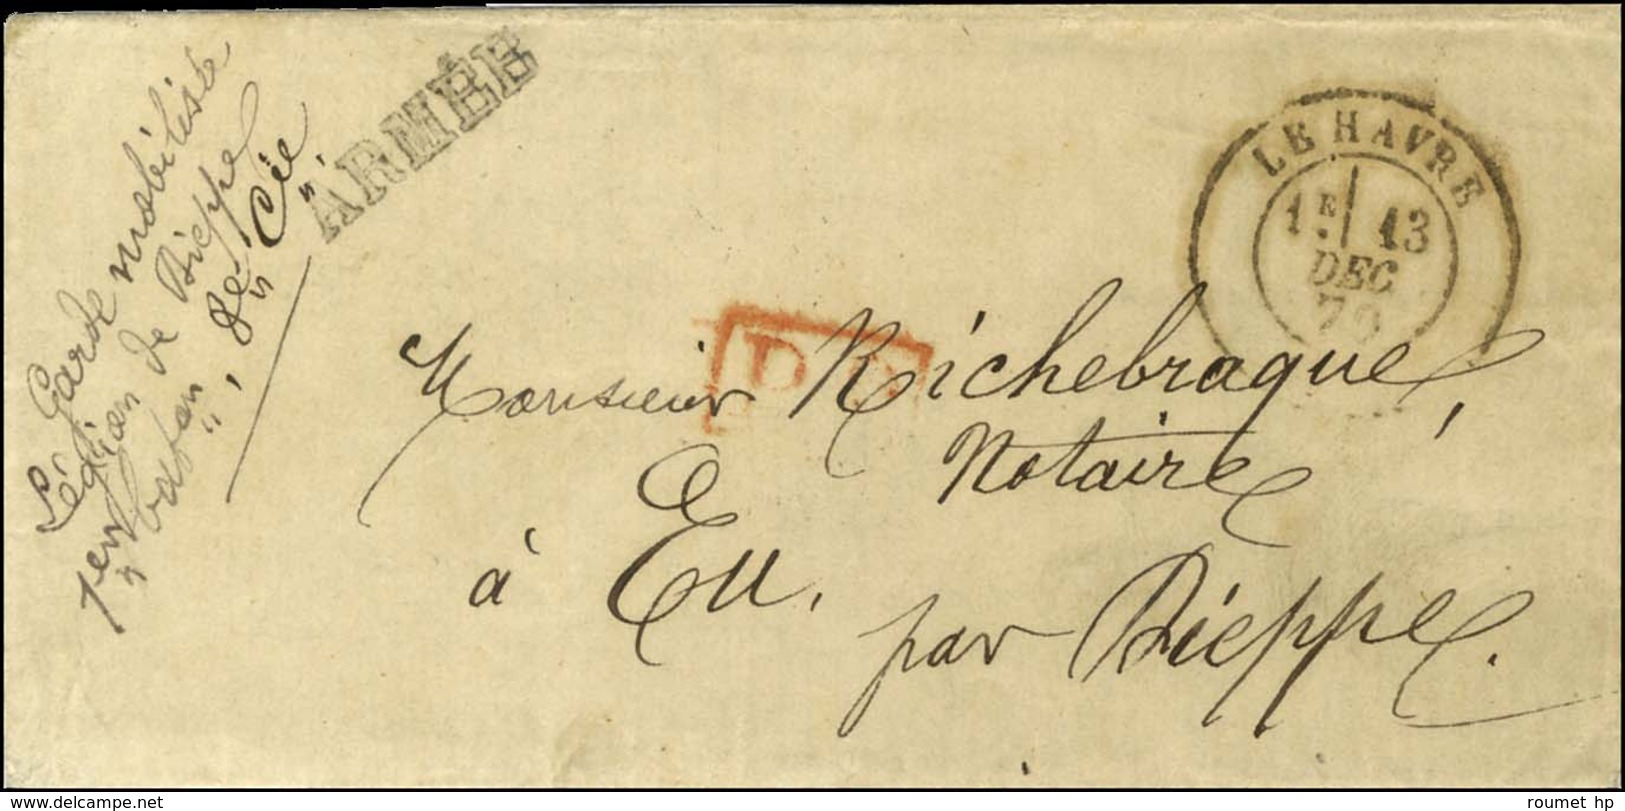 Garde mobilisée
Légion de Dieppe
1er baton, 8e Cie
" " " "
ARMÉE
LE HAVRE
1E 13
DEC
70
P.P.
Monsieur Richebraque,
Notaire
à Eu,
par Dieppe.
www.delcampe.net
roumet hp